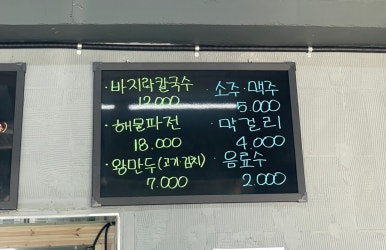 · 바지락칼국수
12.000
· 해물파전
18.000
· 왕만두(고기·김치)
7.000
· 소주·맥주
5.000
· 막걸리
4.000
· 음료수
2.000